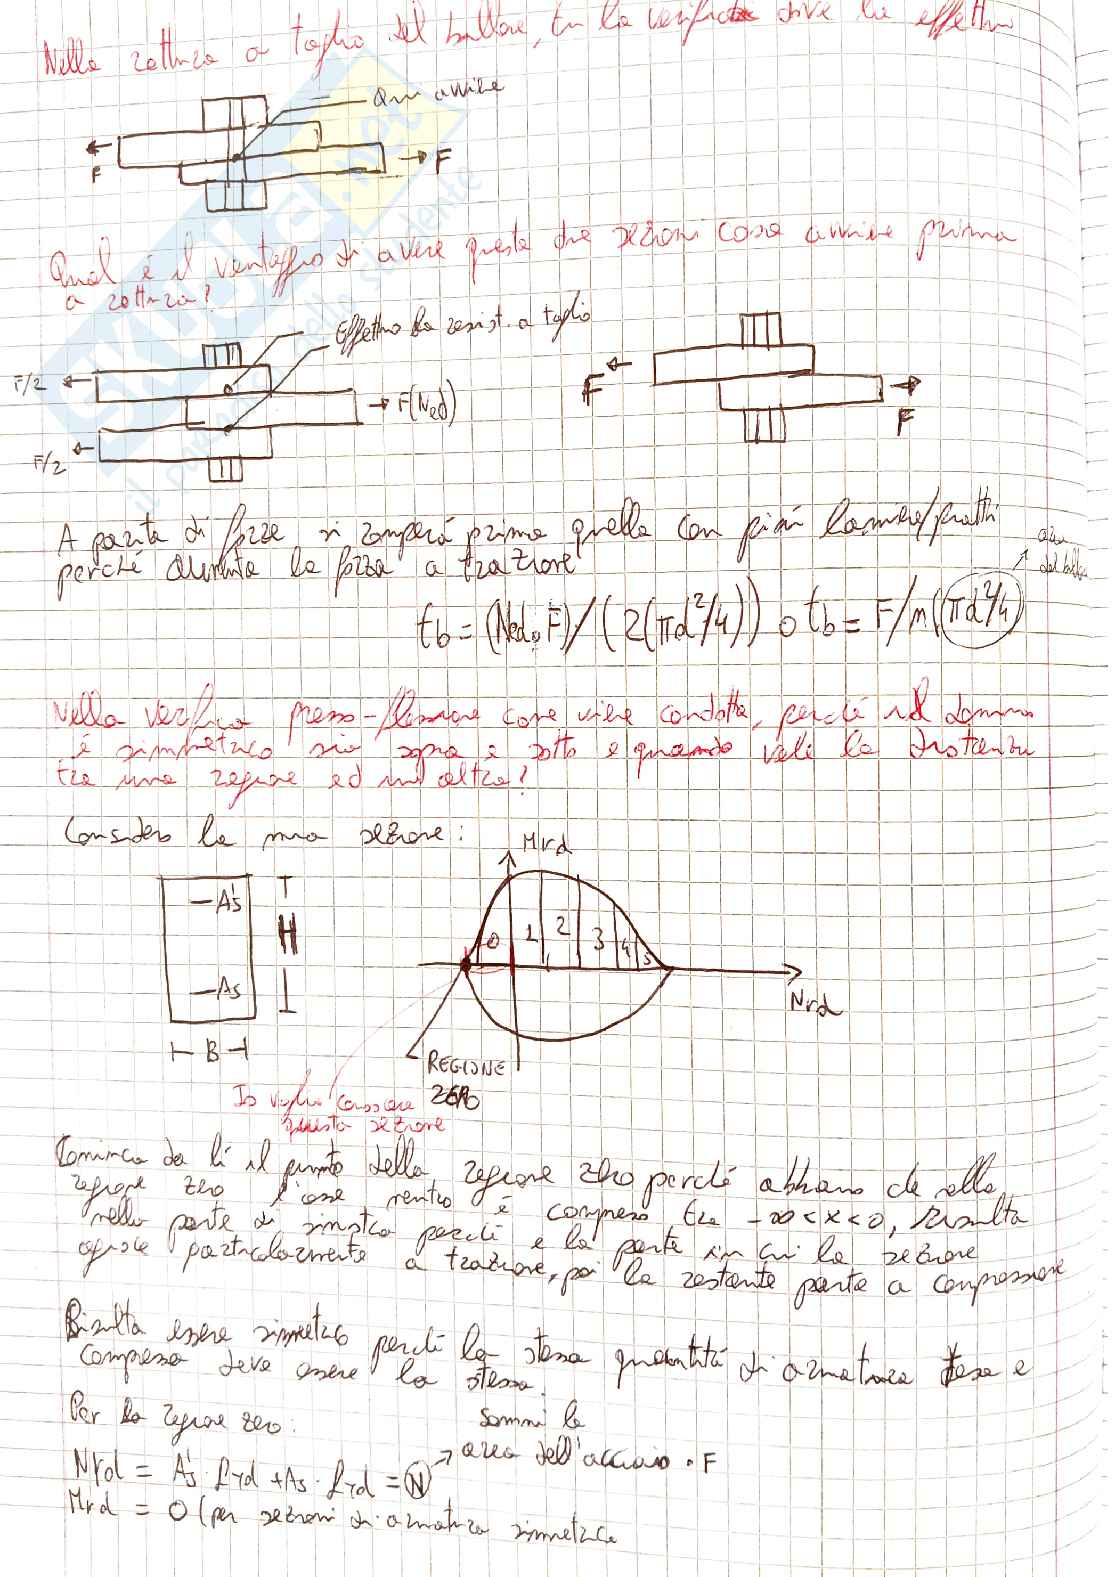 Nella rottura a taglio del bullone, tu la verifica dove la effettui
Qui avviene
F
F
Qual è il vantaggio di avere queste due sezioni cosa avviene prima
a rottura?
Effettuo la resist. a taglio
F/2
F(Ned)
F/2
F
F
A parita di forze si romperá prima quella con piú lamiere/piatti
perché aumenta la forza a trazione
area
del bullone
tb = (Ned o F)/(2(πd²/4)) o tb = F/m(πd²/4)
Nella verifica presso-flessione come viene condotta, perché il dominio
é simmetrico sia sopra e sotto e quando vale la distanza
tra una regione ed un'altra?
Considero la mia sezione:
Mrd
A's
H
As
B
0 1 2 3 4 5
Nrd
REGIONE
ZERO
Io voglio conoscere
questa sezione
Comincia da lì il punto della regione zero perché abbiamo che nella
regione zero l'asse neutro é compreso tra -∞<x<0, Risulta
nella parte di sinistra perché e la parte in cui la sezione
agisce particolarmente a trazione, poi la restante parte a compressione
Risulta essere simmetrico perché la stessa quantitá di armatura tesa e
compressa deve essere la stessa.
Per la regione zero:
sommi le
area dell'acciaio . F
Nrd = A's . fyd + As . fyd = N
Mrd = 0 (per sezioni di armatura simmetrica